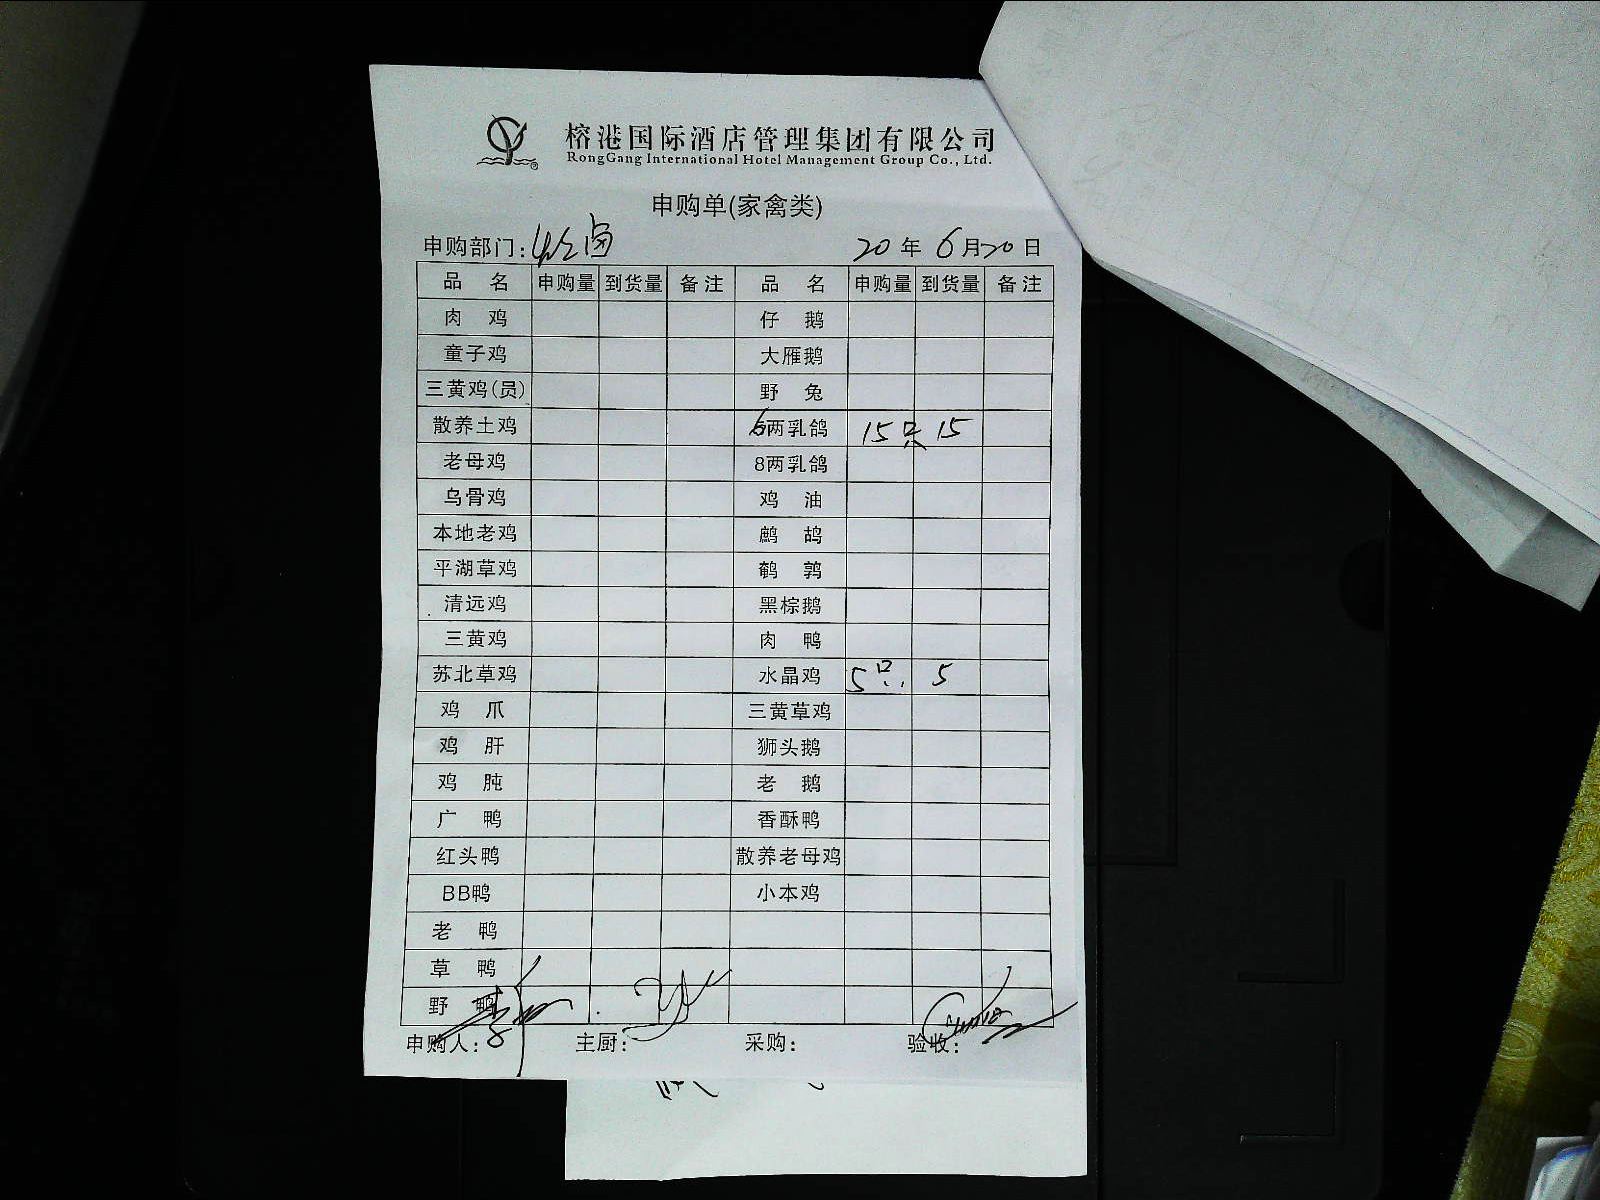 榕港国际酒店管理集团有限公司
RongGang International Hotel Management Group Co., Ltd.
申购单(家禽类)
申购部门: 20年6月20日
品 名 申购量 到货量 备注 品 名 申购量 到货量 备注
肉 鸡 仔 鹅
童子鸡 大雁鹅
三黄鸡(员) 野 兔
散养土鸡 6两乳鸽 15只 15
老母鸡 8两乳鸽
乌骨鸡 鸡 油
本地老鸡 鹧 鸪
平湖草鸡 鹌 鹑
清远鸡 黑棕鹅
三黄鸡 肉 鸭
苏北草鸡 水晶鸡 5只. 5
鸡 爪 三黄草鸡
鸡 肝 狮头鹅
鸡 肫 老 鹅
广 鸭 香酥鸭
红头鸭 散养老母鸡
BB鸭 小本鸡
老 鸭
草 鸭
野 鸭
申购人: 主厨: 采购: 验收: